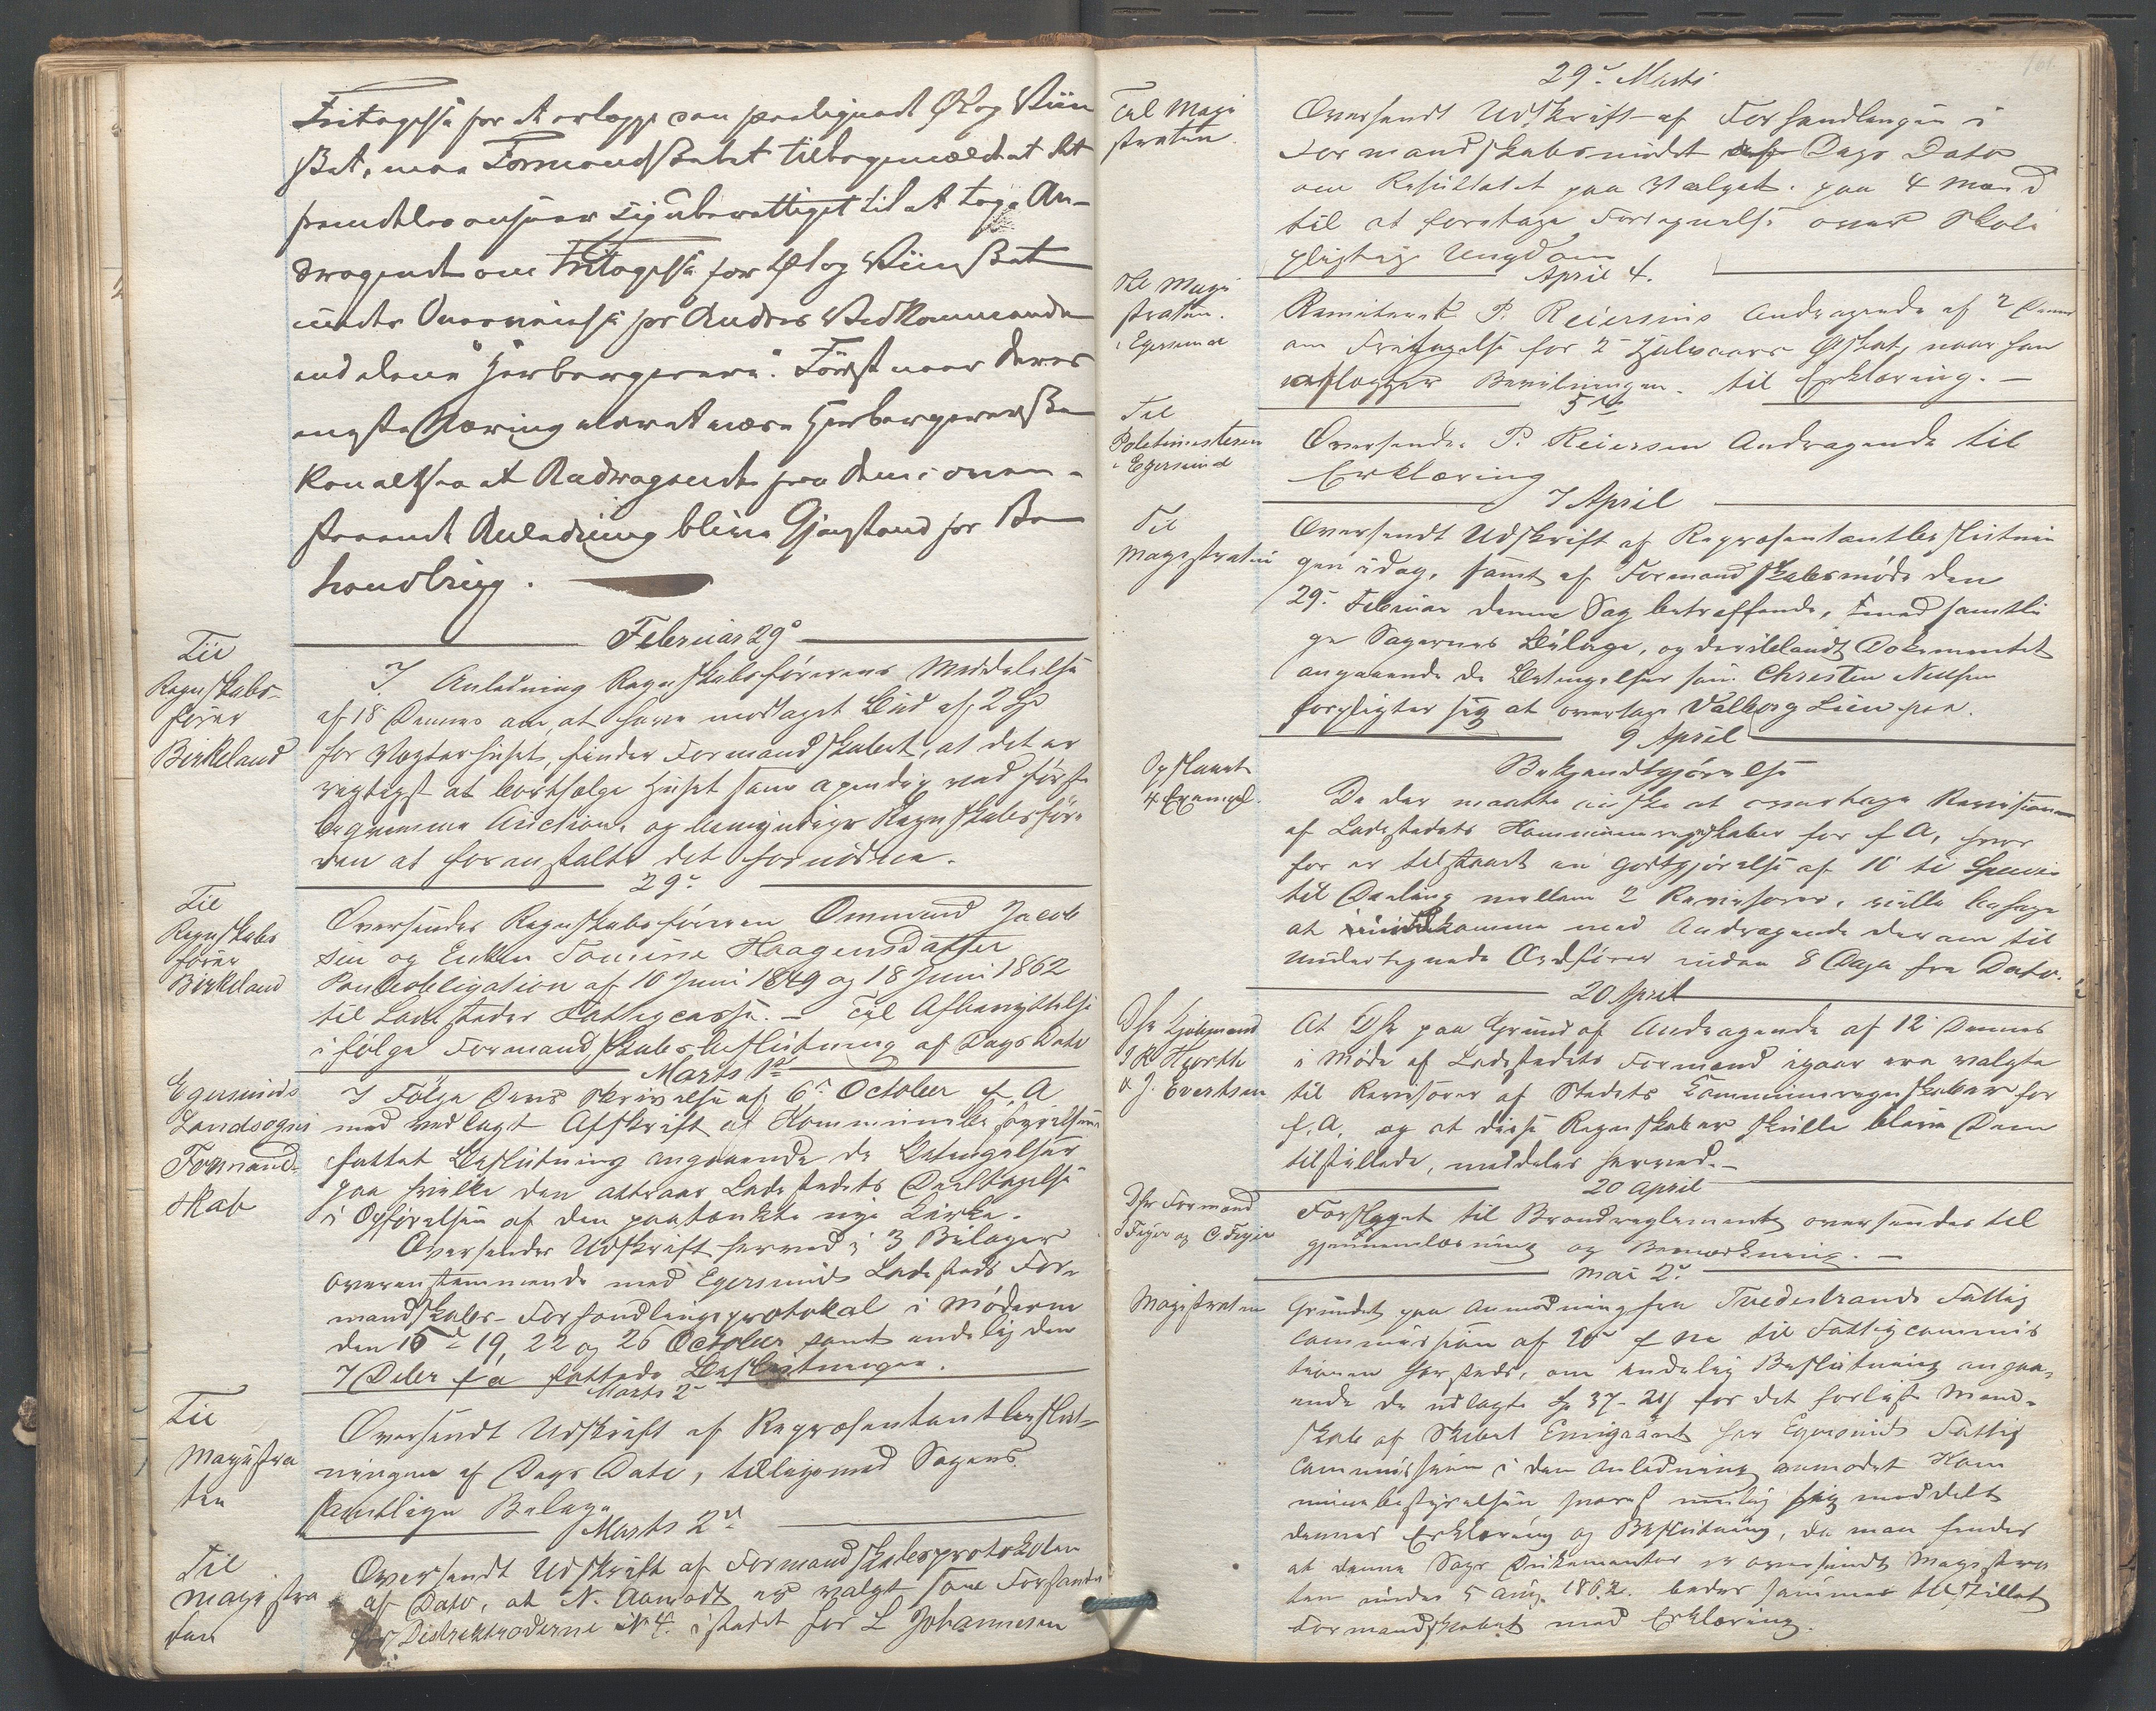 Fritagelse for at erlægge den paalignede Øl og Viin
skat, maa Formandskabet tilbagemelde at det
fremdeles anseer sig uberettiget til at tage An-
dragende om Fritagelse for Øl og Viinskat
under Overveielse for Andres Vedkommende
end alene "Herbergerere". Først naar deres
eneste Næring er at være Herbergerere
kan altsaa et Andragende fra dem i oven-
staaende Anledning blive Gjenstand for Be
handling.
Februar 29de
Til
Regnskabs-
fører
Birkeland
I Anledning Regnskabsførerens Meddelelse
af 18 Dennes om, at have modtaget Bud af 2 Sp
for Vægterhuset, finder Formandskabet, at det er
rigtigst at bortsælge Huset som agendig ved første
beqvemme Auction, og bemyndiger Regnskabsføre
ren at foranstalte det fornødne.
29de
Til
Regnskabs
fører
Birkeland
Oversendes Regnskabsføreren Ommund Jacob
sen og Enken Tomine Haagensdatter
Panteobligation af 10 Juni 1849 og 18 Juni 1862
til Ladestedets Fattigcasse. - Til Afbenyttelse
ifølge Formandskabsbeslutning af Dags Dato
Marts 1ste
Egersunds
Landsogns
Formand-
skab
I Følge Deres Skrivelse af 6te October f. A
med vedlagt Afskrift af Kommunebestyrelsens
fattet Beslutning angaaende de Betingelser
paa hvilke den attraar Ladestedets Deeltagelse
i Opførelsen af den paatænkte nye Kirke.
Oversendes Udskrift herved i 3 Bilager
overensstemmende med Egersunds Ladesteds For
mandskabs-Forhandlingsprotokol i Møderne
den 15de 19, 22 og 26 October samt endelig den
7 Decbr f a fattede Beslutninger.
Marts 2den
Til
Magistra
ten
Oversendt Udskrift af Repræsentantbeslut-
ningen af Dags Dato, tilligemed Sagens
samtlige Bilage
Marts 2den
Til
Magistra
ten
Oversendt Udskrift af Formandskabsprotokolen
af Dato, at N. Aamodt er valgt som Forstander
for Distriktroderne No 4. istedet for L Johannesen
29de Marts
Til Magi
straten.
Oversendt Udskrift af Forhandlingen i
Formandskabsmødet af Dags Dato
om Resultatet paa Valget. paa 4 Mænd
til at foretage Fortegnelse over Skole
pligtige Ungdom
April 4.
Til Magi
straten.
i Egersund
Remitteret P. Reiersens Andragende af 2 Dennes
om Fritagelse for 2 Halvaars Ølskat, naar han
aflægger Bevilningen. til Erklæring. -
5te
Til
Politimesteren
i Egersund
Oversendes P. Reiersen Andragende til
Erklæring
7 April
Til
Magistraten
Oversendt Udskrift af Repræsentantbeslutnin
gen idag, samt af Formandskabsmøde den
29de Februar denne Sag betreffende, med samtli
ge Sagernes Bilage, og deriblandt Dokumentet
angaaende de Betingelser som Christen Nielsen
forpligter sig at overtage Valborg Lien paa.
9 April
Opslaaet
4 Exempl.
Bekjendtgjørelse
De der maatte ønske at overtage Revisionen
af Ladestedets Kommuneregnskaber for f A, hvor
for er tilstaaet en Godtgjørelse af 10 ti Specier
til Deeling mellem 2 Revisorer, ville behage
at indkomme med Andragende derom til
undertegnede Ordfører inden 8 Dage fra Dato.
20 April
J R Hjorth
& J. Evertsen
At DHr paa Grund af Andragende af 12 Dennes
i Møde af Ladestedets Formænd igaar ere valgte
til Revisorer af Stedets Kommuneregnskaber for
f. A. og at disse Regnskaber skulle blive Dem
tilstillede, meddeles herved. -
20 April
DHr Formænd
J Feyer og C. Feyer
Forslaget til Brandreglement oversendes til
gjennemlæsning og Bemærkning. -
Mai 2de
Magistraten
Grundet paa Anmodning fra Tvedestrands Fattig
commission af 20de f M til Fattigcommis
sionen hersteds, om endelig Beslutning angaa-
ende de udlagte Sp 37- 21 ß for det forliste Mand-
skab af Skibet Emigrant har Egersunds Fattig
commission i den Anledning anmodet Kom
munebestyrelsen snarest mulig meddelt
dennes Erklæring og Beslutning, da man finder
at denne Sags Dokumenter er oversendt Magistra
ten under 5 Aug. 1862. bedes samme tilstillet
Formandskabet med Erklæring.